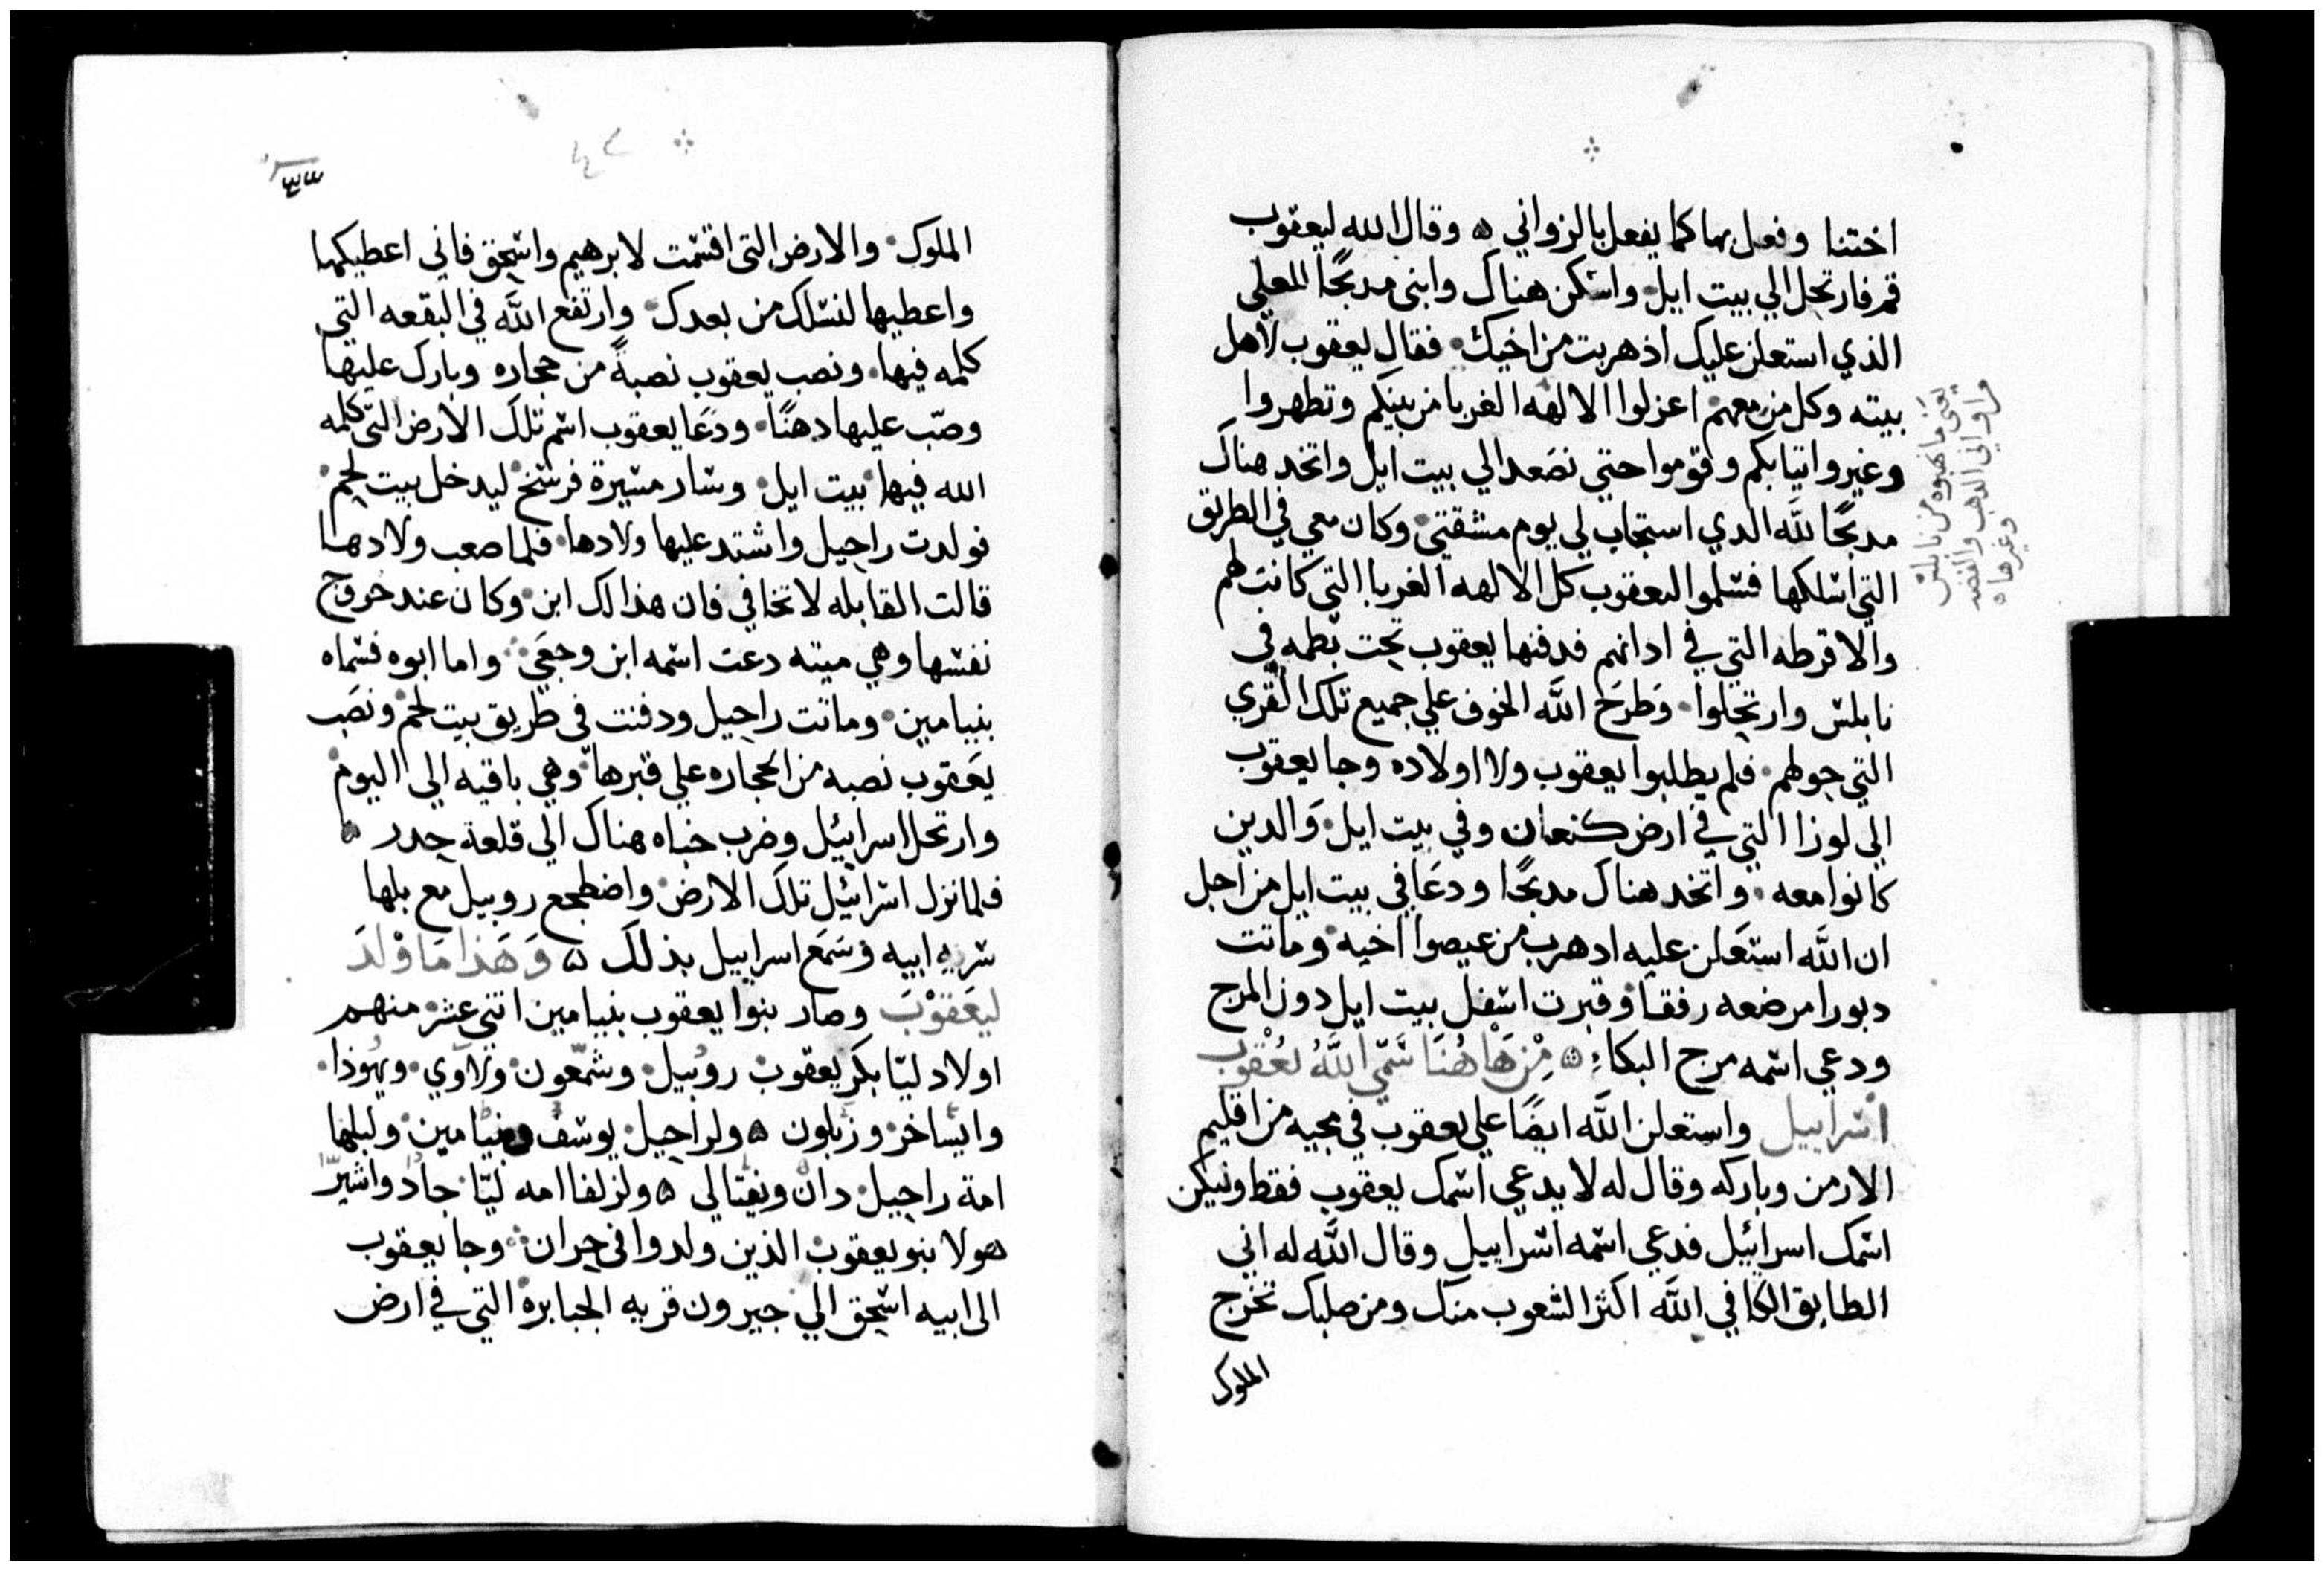 اختنا وفعل بها كما يفعل بالزواني ۵ وقال الله ليعقوب
قم فارتحل الي بيت ايل واسكن هناك وابني مدبحًا للمعلي
الذي استعلن عليك اذ هربت من اخيك فقال يعقوب لاهل
بيته وكل من معهم اعزلوا الالهه الغربا من بينكم وتطهروا
وغيروا تيابكم وقوموا حتي نصَعد الي بيت ايل واتخد هناك
مدبحًا للَّه الدي استجاب لي يوم مشقتي وكان معي في الطريق
التي اسلكها فسلموا ليعقوب كل الالهه الغربا التي كانت لهم
والاقرطه التي في ادانهم فدفنها يعقوب تحت بطمه في
نابلس وارتحلوا وَطرَح اللَّه الخوف علي جميع تلك القري
التي حولهم فلم يطلبوا يعقوب ولا اولاده وجا يعقوب
الي لوزا التي في ارض كنعان وفي بيت ايل وَالدين
كانوا معه واتخد هناك مدبحًا ودعَا في بيت ايل من اجل
ان اللَّه استَعلن عليه اد هرب من عيصوا اخيه وماتت
دبورا مرضعه رفقا وقبرت اسفل بيت ايل دون المرج
ودعي اسمه مرج البكاء ۵ مِن هَاهُنَا سَمّي اللَّهُ يعْقوب
اسراييل واستعلن اللَّه ايضًا علي يعقوب في مجيه من اقليم
الارمن وباركه وقال له لا يدعي اسمك يعقوب فقط وليكن
اسمك اسرائيل فدعي اسمه اسراييل وقال اللَّه له اني
الطابق الكافي اللَّه اكثر الشعوب منك ومن صلبك تخرج
الملوك
يعني ما نهبوه من نابلس
من اواني الدهب والفضه
وغيرها ۵
الملوك والارض التي اقسمت لابرهيم واسحق فاني اعطيكها
واعطيها لنسلك من بعدك وارتفع اللَّه في البقعه التي
كلمه فيها ونصب يعقوب نصبةً من حجاره وبارك عليها
وصّب عليها دهنًا ودَعَا يعقوب اسم تلك الارض التي كلمه
الله فيها بيت ايل وسار مسيرة فرسخ ليدخل بيت لحم
فولدت راحيل واشتد عليها ولادها فلما صعب ولادها
قالت القابله لا تخافي فان هذا لك ابن وكان عند خروج
نفسها وهي ميته دعت اسمه ابن وجعَي واما ابوه فسماه
بنيامين وماتت راحيل ودفنت في طريق بيت لحم ونصَب
يعَقوب نصبه من الحجاره علي قبرها وهي باقيه الى اليوم
وارتحل اسراييل وضرب خباه هناك الى قلعة حدر ۵
فلما نزل اسرائيل تلك الارض واضطجع روبيل مع بلها
سريه ابيه وسَمَع اسراييل بذلك ۵ وَهَذا مَا وْلدَ
ليَعَقوْبَ وصار بنوا يعقوب بنيامين اتني عشر منهم
اولاد ليّا بكر يعقوب روبيل وشمعون ولاوي ويهوذا
وايساخر وزبلون ۵ ولراحيل يوسف وبنيامين ولبلها
امة راحيل دان ونفتالي ۵ ولزلفا امه ليّا جاد واشير
هولا بنو يعقوب الذين ولدوا في حران وجا يعقوب
الى ابيه اسحق الي حبرون قريه الجبابرة التي في ارض